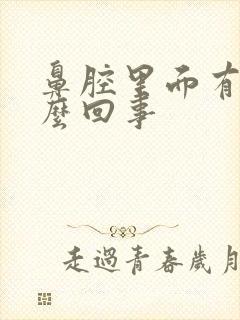 鼻腔里面有
麼回事
走過青春歲月